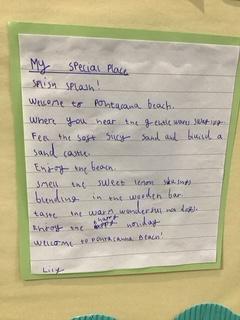 My special place
splish splash!
welcome to Pontacana beach.
where you hear the gentle waves
Feel the soft silky sand and build a
sand castle.
Enjoy the beach.
smell the sweet lemon
blending in the wooden bar.
taste the warm wonderful hot dogs.
Enjoy the happy holiday
welcome to Pontacanna Beach!
Lily